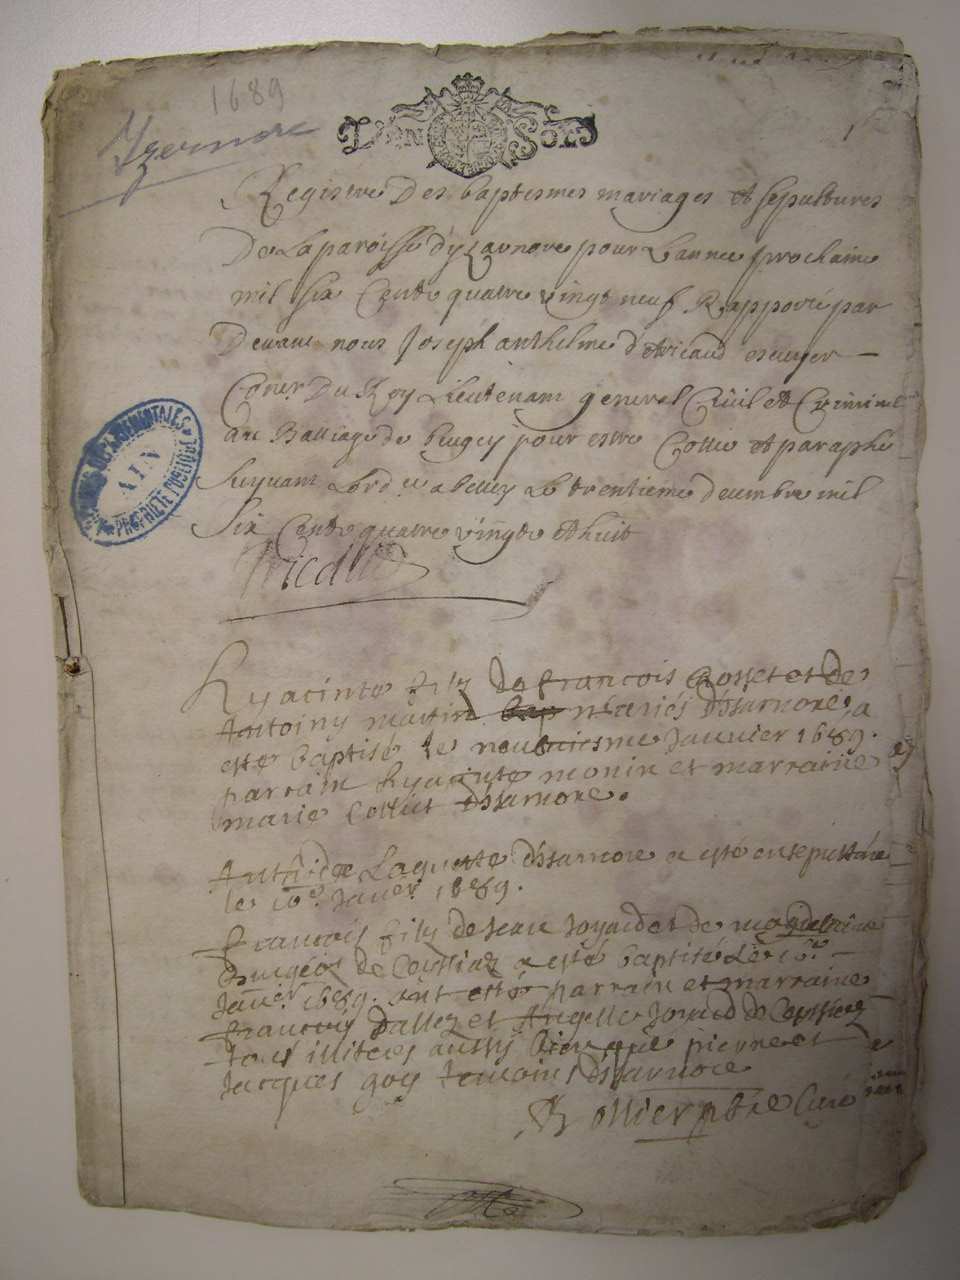 1689
Izernore
1
Registre Des baptesmes mariages et sepultures
De La paroisse d'yzarnore pour Lannee prochaine
mil six Cents quatre vingt neuf Rapporté par
Devant nous Joseph anthelme d'Aricaud escuyer
Coner Du Roy Lieutenant general Civil et Criminel
au Balliage de bugey pour estre Cotté et paraphé
suyvant Lord.ce a belley Le trentieme decembre mil
Six Cents quatre vingts et huit
ARCHIVES DEPARTEMENTALES
AIN
PROPRIETE PUBLIQUE
Hyacinte filz de françois Gosset et de
Antoiny martin mariés d'Isarnore, a
esté baptisé le neuviesme Janvier 1689.
parrain hyacinte monin et marraine
marie Colliet d'Isarnore.
Laguette d'Isarnore a esté ensepulturé
le 10e Janver 1689.
francois filz de Jean Joyard et de magdeleine
de Ceyssiaz a esté baptisé Le
Janver 1689. ont esté parrain et marraine
francois dallez et Angelle Joyard de Ceyssiaz
tous illiterés aussy bien que pierre et
Jacques goy temoins d'Isarnore
Rollier pbre Curé